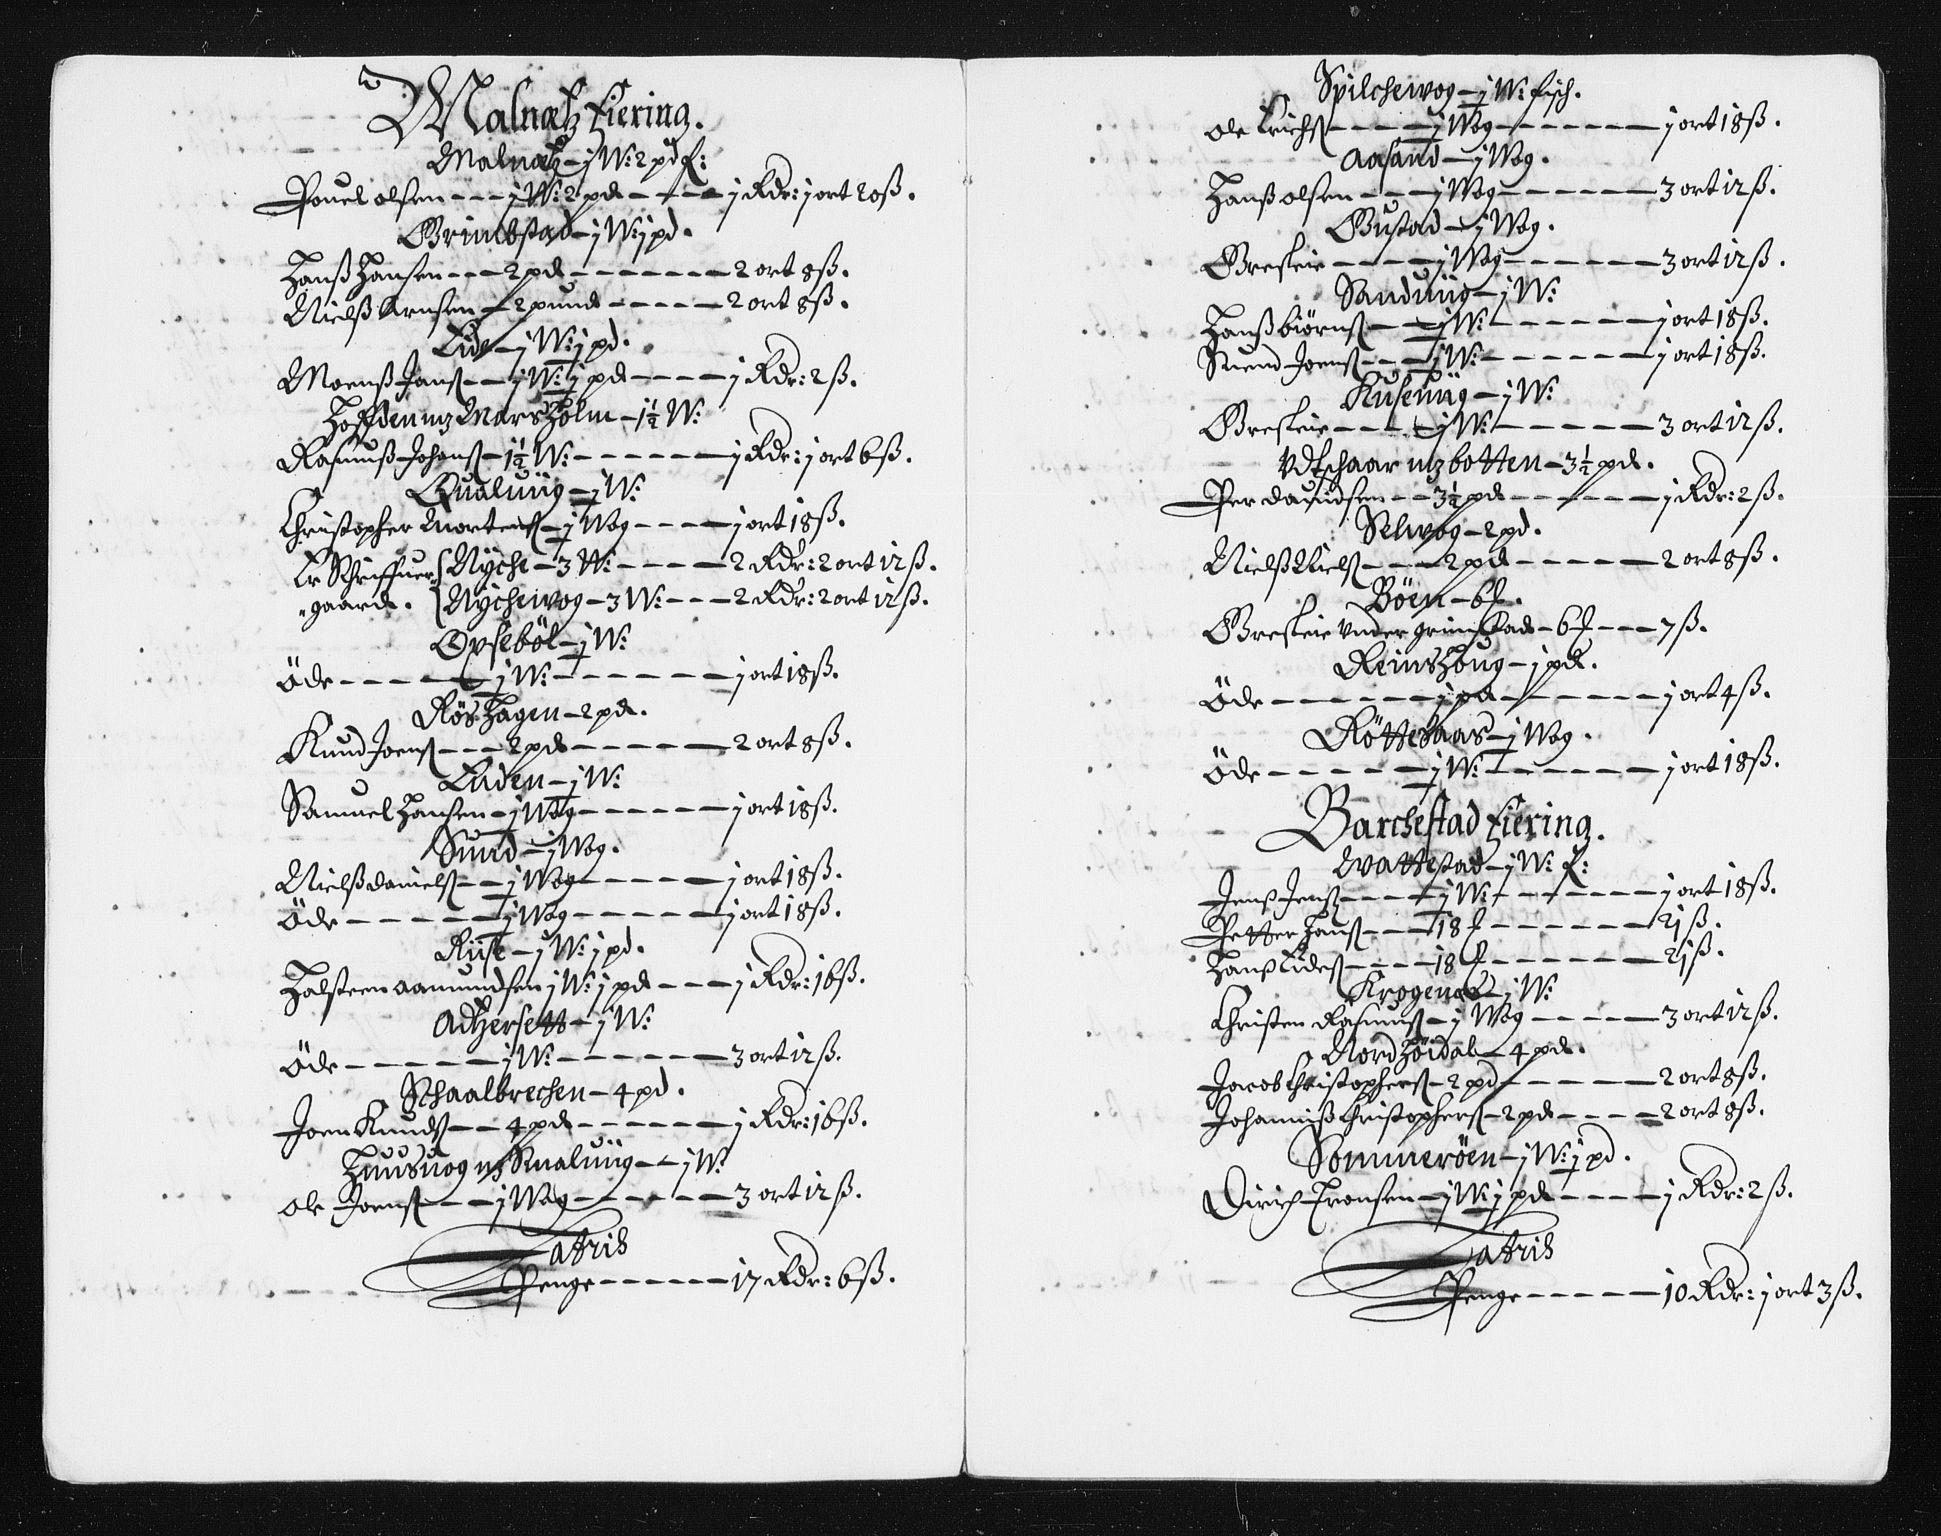 Malnæs Fiering.
Malnæs - j W: 2 pd f:
Pouel olsen - - - j W: 2 pd - - - j Rdr: j ort 20 ß.
Grimbstad - j W: j pd.
Hanß Hansen - - - 2 pd - - - - - - - 2 ort 8 ß.
Nielß Arnsen - 2 pund - - - - - 2 ort 8 ß.
Lide - j W: j pd.
Moenß Janß - - j W: j pd - - - - j Rdr: 2 ß.
Hofden mz Mars Holm - 1½ W:
Rasmuß Johanß - 1½ W: - - - - - - j Rdr: j ort 6 ß.
Qualuiig - j W:
Christopher Mortenß - j Wog - - - - j ort 18 ß.
Er Schriffuer { Nyche - 3 W: - - - - 2 Rdr: 2 ort 12 ß.
gaard. { Nycheivog - 3 W: - - - 2 Rdr: 2 ort 12 ß.
Opseböl - j W:
Öde - - - - - j W: - - - - - - - j ort 18 ß.
Rös Hagen - 2 pd.
Knud Joenß - - - 2 pd - - - - - - 2 ort 8 ß.
Enden - j W:
Samuel Hansen - j Wog - - - - - - j ort 18 ß.
Sund - j Wog.
Nielß danielß - - j Wog - - - - - j ort 18 ß.
Öde - - - - - - j Wog - - - - - j ort 18 ß.
Riise - j W: j pd.
Halsteen aamundsen j W: j pd - - - j Rdr: 16 ß.
Adhersett - j W:
Öde - - - - - - j W: - - - - - - 3 ort 12 ß.
Schaalbrechen - 4 pd.
Joen Knudß - - 4 pd - - - - - - j Rdr: 16 ß.
Huusuog mz Sualuiig - j W:
Ole Joenß - - - j Wog - - - - - - 3 ort 12 ß.
Lateris
Penge - - - - - 17 Rdr: 6 ß.
Spilcheivog - j W: fisch.
Ole Erichß - - - - j Wog - - - - - - - j ort 18 ß.
Aasand - j Wog.
Hanß olsen - - - j Wog - - - - - - - 3 ort 12 ß.
Gustad - j Wog.
Gresleie - - - - j Wog - - - - - - 3 ort 12 ß.
Sanduiig - j W:
Hanß biörnß - - j W: - - - - - - j ort 18 ß.
Suend Joenß - - - j W: - - - - - - j ort 18 ß.
Kuseuiig - j W:
Gresleie - - - - j W: - - - - - - 3 ort 12 ß.
Vdtschaar mz botten - 3½ pd.
Per dauidsen - - 3½ pd - - - - - - j Rdr: 2 ß.
Selwog - 2 pd.
Nielß Nielß - - - 2 pd - - - - - - 2 ort 8 ß.
Böen - 6 f.
Gresleie vnder grimstad - 6 f - - - 7 ß.
Reins Houg - j pd.
Öde - - - - - - - j pd - - - - - - j ort 4 ß.
Rötteaas - j Wog.
Öde - - - - - - j W: - - - - - - j ort 18 ß.
Barchestad Fiering.
Wattestad - j W: f:
Jenß Jenß - - - - j W: - - - - - - j ort 18 ß.
Petter Hanß - - - 18 f - - - - - - - 21 ß.
Hanß Eideß - - - - 18 f - - - - - - - 21 ß.
Krogenes - j W:
Christen Rasmuß - j Wog - - - - - 3 ort 12 ß.
Nord Höidal - 4 pd.
Jacob Christopherß - 2 pd - - - - - - 2 ort 8 ß.
Johanniß Christopherß - 2 pd - - - - 2 ort 8 ß.
Sommeröen - j W: j pd.
Dirich Tronsen - j W: j pd - - - - j Rdr: 2 ß.
Lateris
Penge - - - - - 10 Rdr: j ort 3 ß.